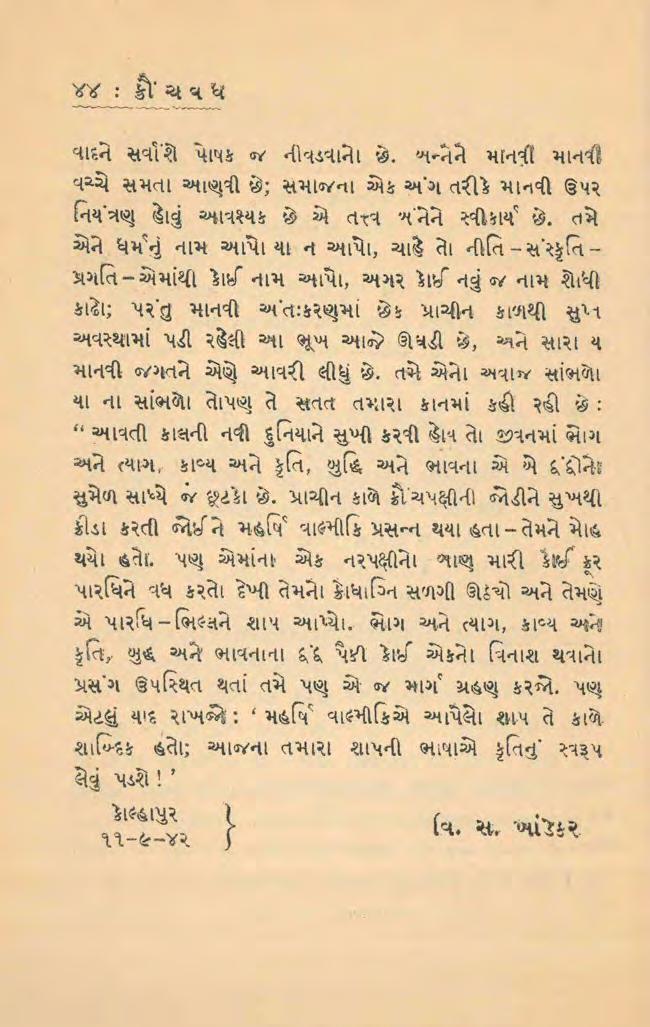 ૪૪ : ક્રૌંચવધ
વાદને સર્વાંશે પોષક જ નીવડવાનો છે. બન્નેને માનવી માનવી
વચ્ચે સમતા આણવી છે; સમાજના એક અંગ તરીકે માનવી ઉપર
નિયંત્રણ હોવું આવશ્યક છે એ તત્ત્વ બંનેને સ્વીકાર્ય છે. તમે
એને ધર્મનું નામ આપો યા ન આપો, ચાહે તો નીતિ – સંસ્કૃતિ –
પ્રગતિ – એમાંથી કોઈ નામ આપો, અગર કોઈ નવું જ નામ શોધી
કાઢો; પરંતુ માનવી અંતઃકરણમાં છેક પ્રાચીન કાળથી સુપ્ત
અવસ્થામાં પડી રહેલી આ ભૂખ આજે ઊઘડી છે, અને સારા ય
માનવી જગતને એણે આવરી લીધું છે. તમે એનો અવાજ સાંભળો
યા ના સાંભળો તોપણ તે સતત તમારા કાનમાં કહી રહી છે :
“ આવતી કાલની નવી દુનિયાને સુખી કરવી હોય તો જીવનમાં ભોગ
અને ત્યાગ, કાવ્ય અને કૃતિ, બુદ્ધિ અને ભાવના એ બે દ્વંદ્વોનો
સુમેળ સાધ્યે જ છૂટકો છે. પ્રાચીન કાળે ક્રૌંચપક્ષીની જોડીને સુખથી
ક્રીડા કરતી જોઈને મહર્ષિ વાલ્મીકિ પ્રસન્ન થયા હતા – તેમને મોહ
થયો હતો. પણ એમાંના એક નરપક્ષીનો બાણ મારી કોઈ ક્રૂર
પારધિને વધ કરતો દેખી તેમનો ક્રોધાગ્નિ સળગી ઊઠ્યો અને તેમણે
એ પારધિ – ભિલ્લને શાપ આપ્યો. ભોગ અને ત્યાગ, કાવ્ય અને
કૃતિ, બુદ્ધિ અને ભાવનાના દ્વંદ્વ પૈકી કોઈ એકનો વિનાશ થવાનો
પ્રસંગ ઉપસ્થિત થતાં તમે પણ એ જ માર્ગ ગ્રહણ કરજો. પણ
એટલું યાદ રાખજો : ‘ મહર્ષિ વાલ્મીકિએ આપેલો શાપ તે કાળે
શાબ્દિક હતો; આજના તમારા શાપની ભાષાએ કૃતિનું સ્વરૂપ
લેવું પડશે ! ’
કોલ્હાપુર
૧૧–૯–૪૨
વિ. સ. ખાંડેકર